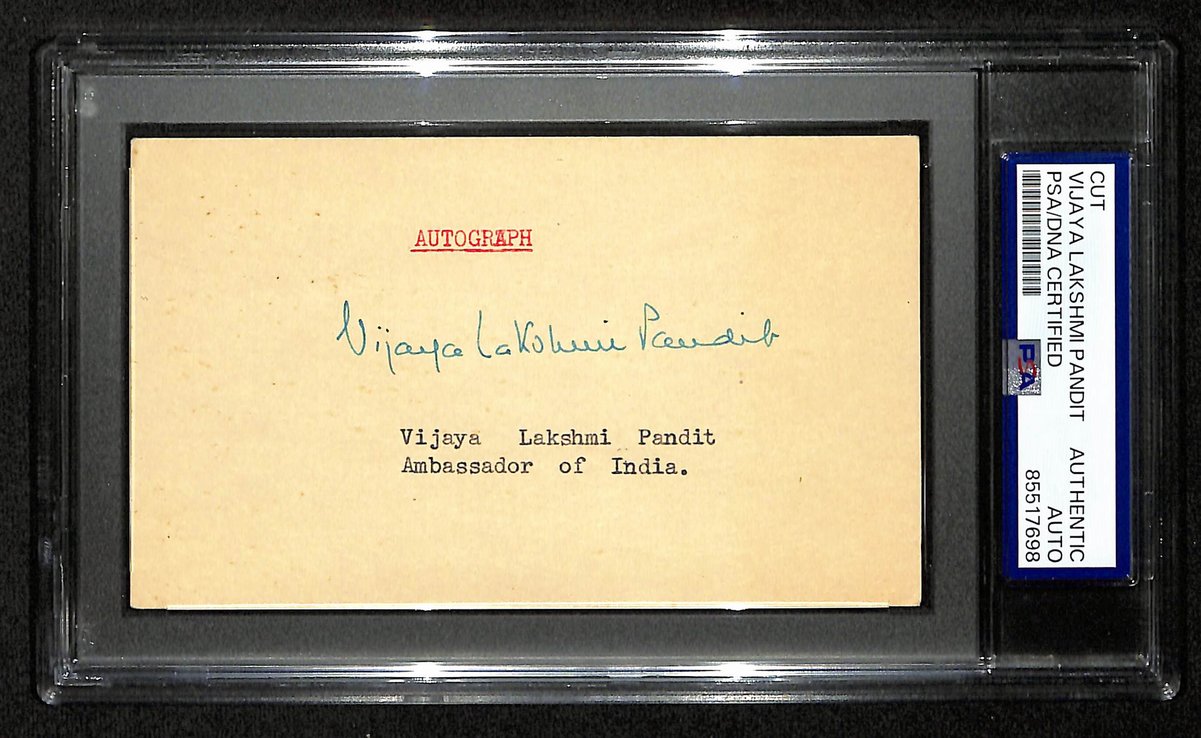 AUTOGRAPH
Vijaya Lakshmi Pandit
Vijaya Lakshmi Pandit
Ambassador of India.
CUT
VIJAYA LAKSHMI PANDIT AUTHENTIC
PSA/DNA CERTIFIED AUTO
85517698
PSA